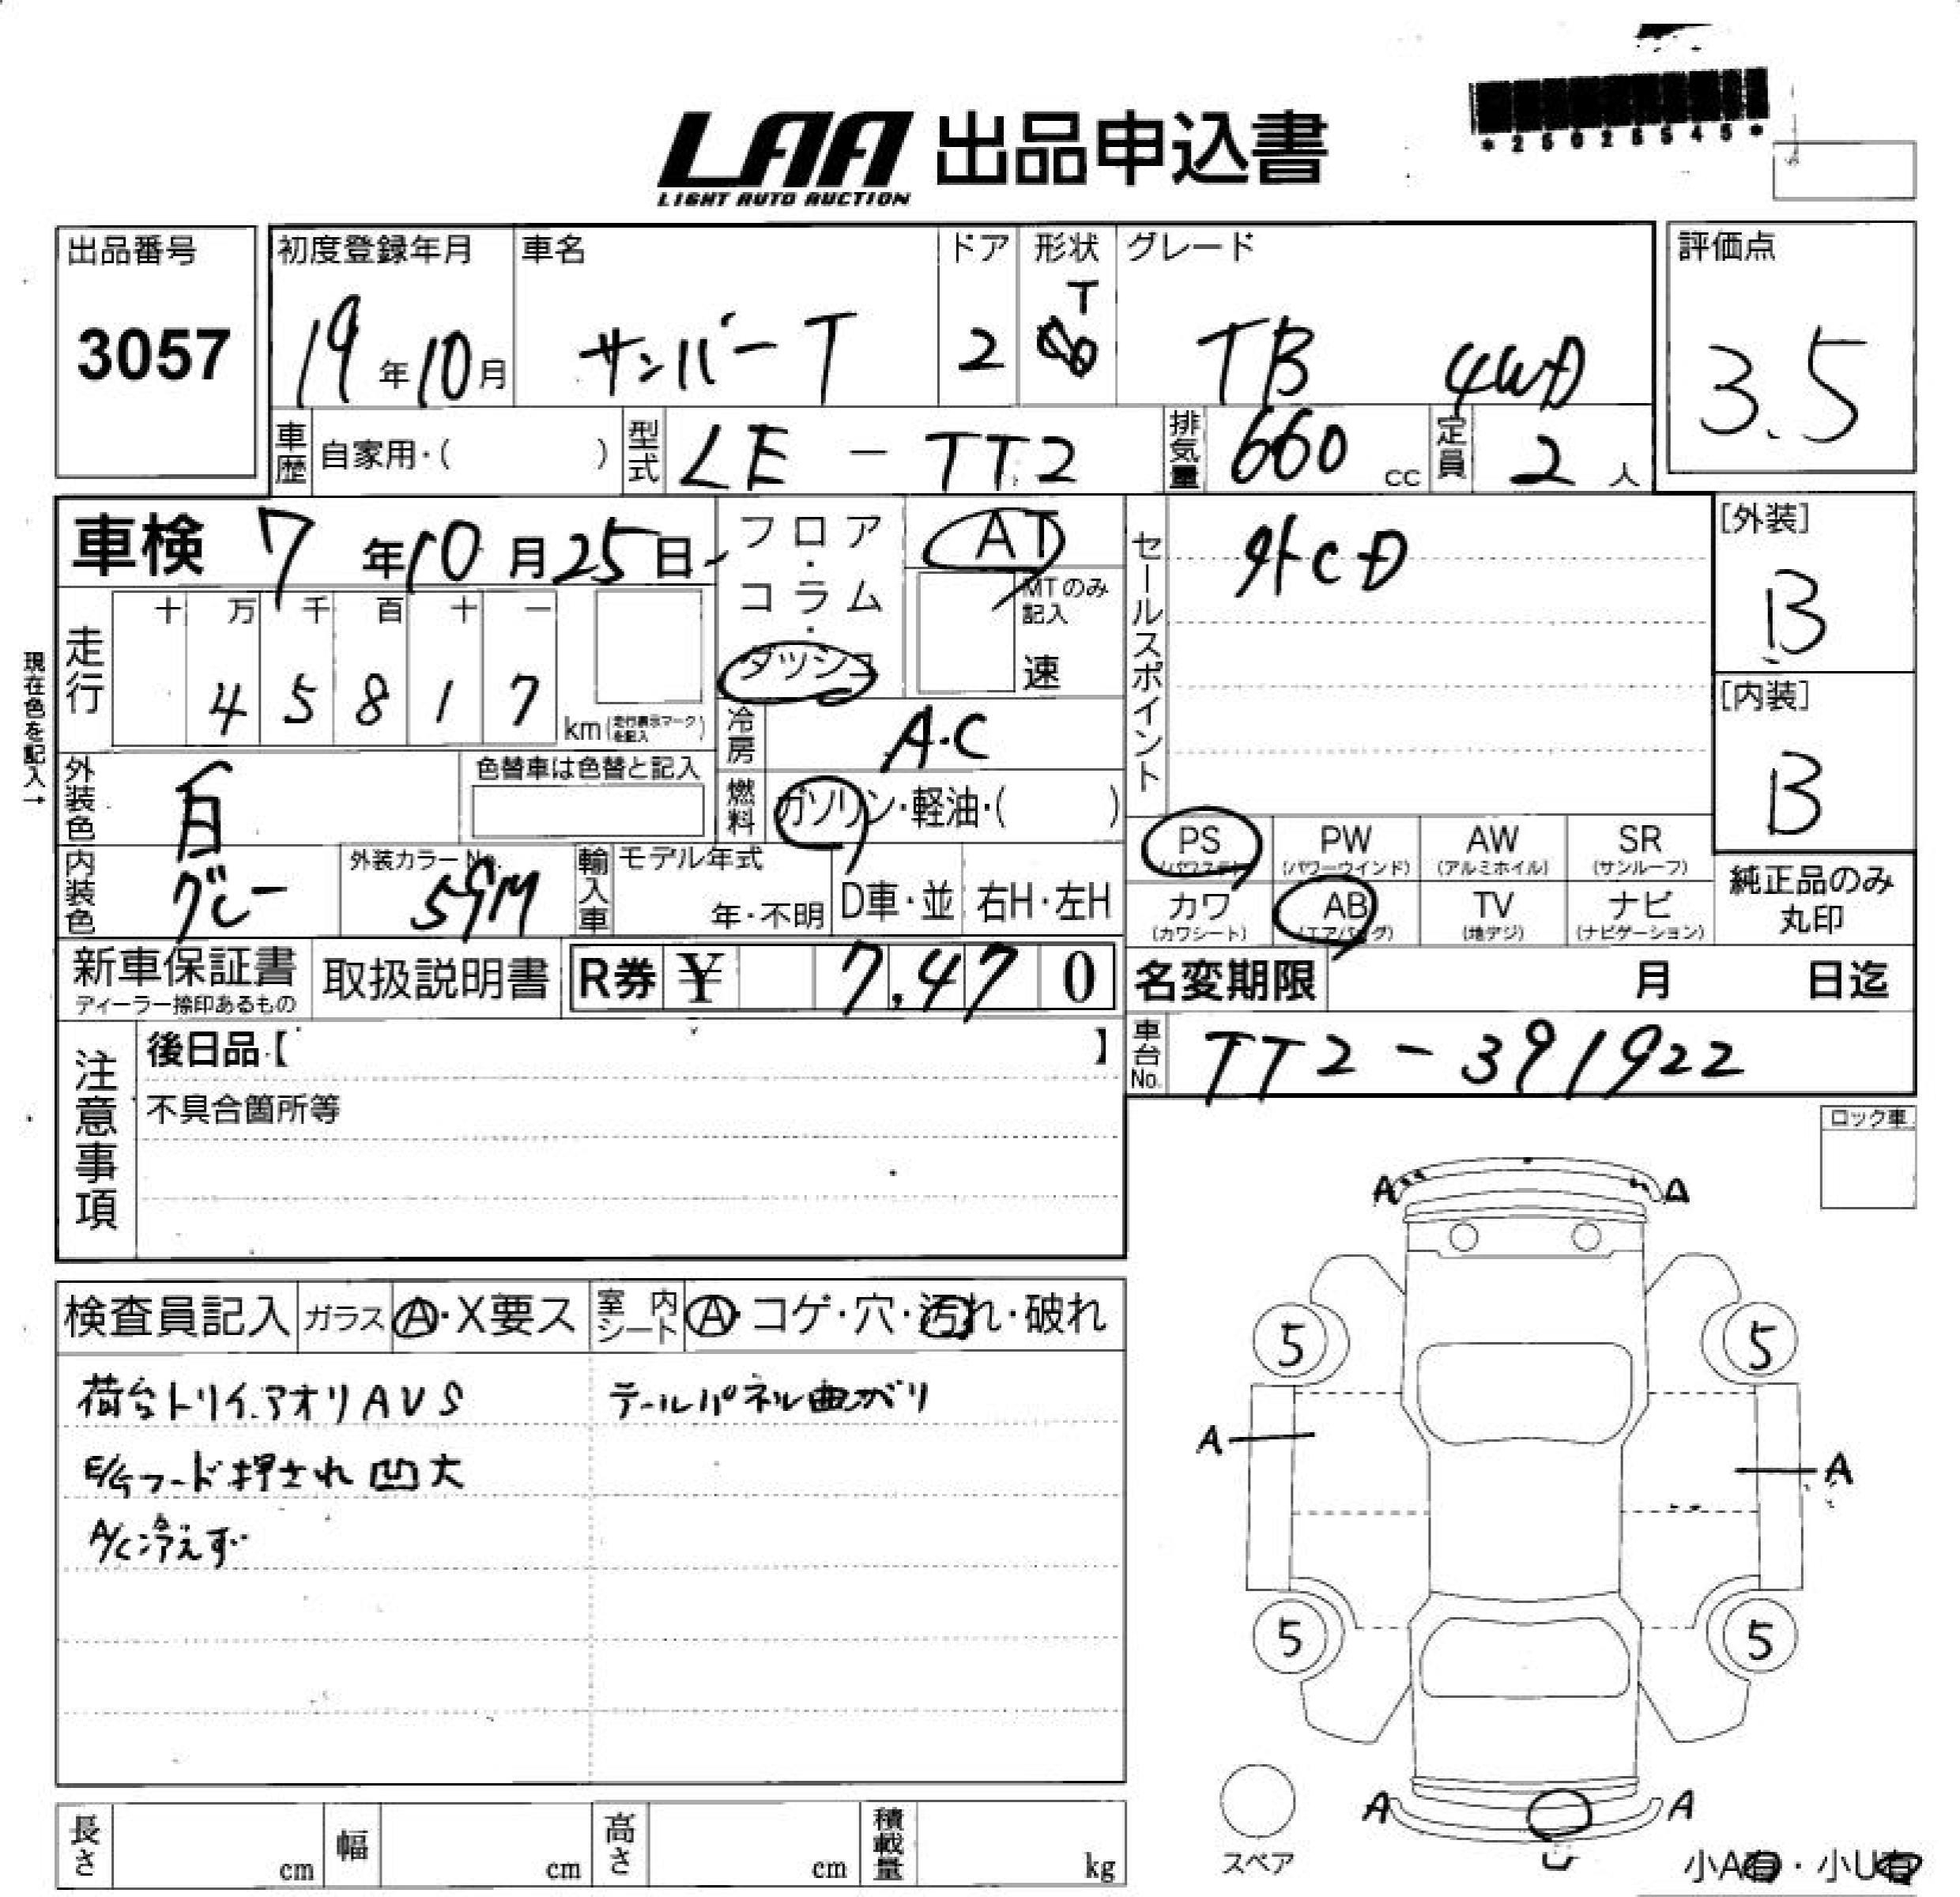 LAA 出品申込書
LIGHT AUTO AUCTION
*25026545*
出品番号 3057
初度登録年月 19年10月
車名 サンバーT
ドア 2
形状 T
グレード TB 4WD
評価点 3.5
車歴 自家用・( )
型式 LE-TT2
排気量 660 cc
定員 2 人
車検 7年10月25日
フロア・コラム・ダッシュ
AT
MTのみ記入 速
セールスポイント 外CD
[外装] B
[内装] B
現在色を記入→
走行 十 万 千 百 十 一
4 5 8 1 7 km(走行表示マークを記入)
冷房 A・C
外装色 白
色替車は色替と記入
燃料 ガソリン・軽油・( )
内装色 グレー
外装カラーNo. 59M
輸入車 モデル年式 年・不明 D車・並 右H・左H
PS (パワステ) PW (パワーウインド) AW (アルミホイル) SR (サンルーフ)
カワ (カワシート) AB (エアバッグ) TV (地デジ) ナビ (ナビゲーション)
純正品のみ丸印
新車保証書 ディーラー捺印あるもの
取扱説明書
R券 ¥ 7,470
名変期限 月 日迄
車台No. TT2-391922
注意事項
後日品【 】
不具合箇所等
ロック車
検査員記入 ガラス A・X要ス 室内シート A・コゲ・穴・汚れ・破れ
荷台トリイ.アオリAUS テールパネル曲がり
E/Gフード押され凹大
A/C冷えず
A A
5 5
A A
5 5
A A
U
スペア
小A有・小U有
長さ cm 幅 cm 高さ cm 積載量 kg